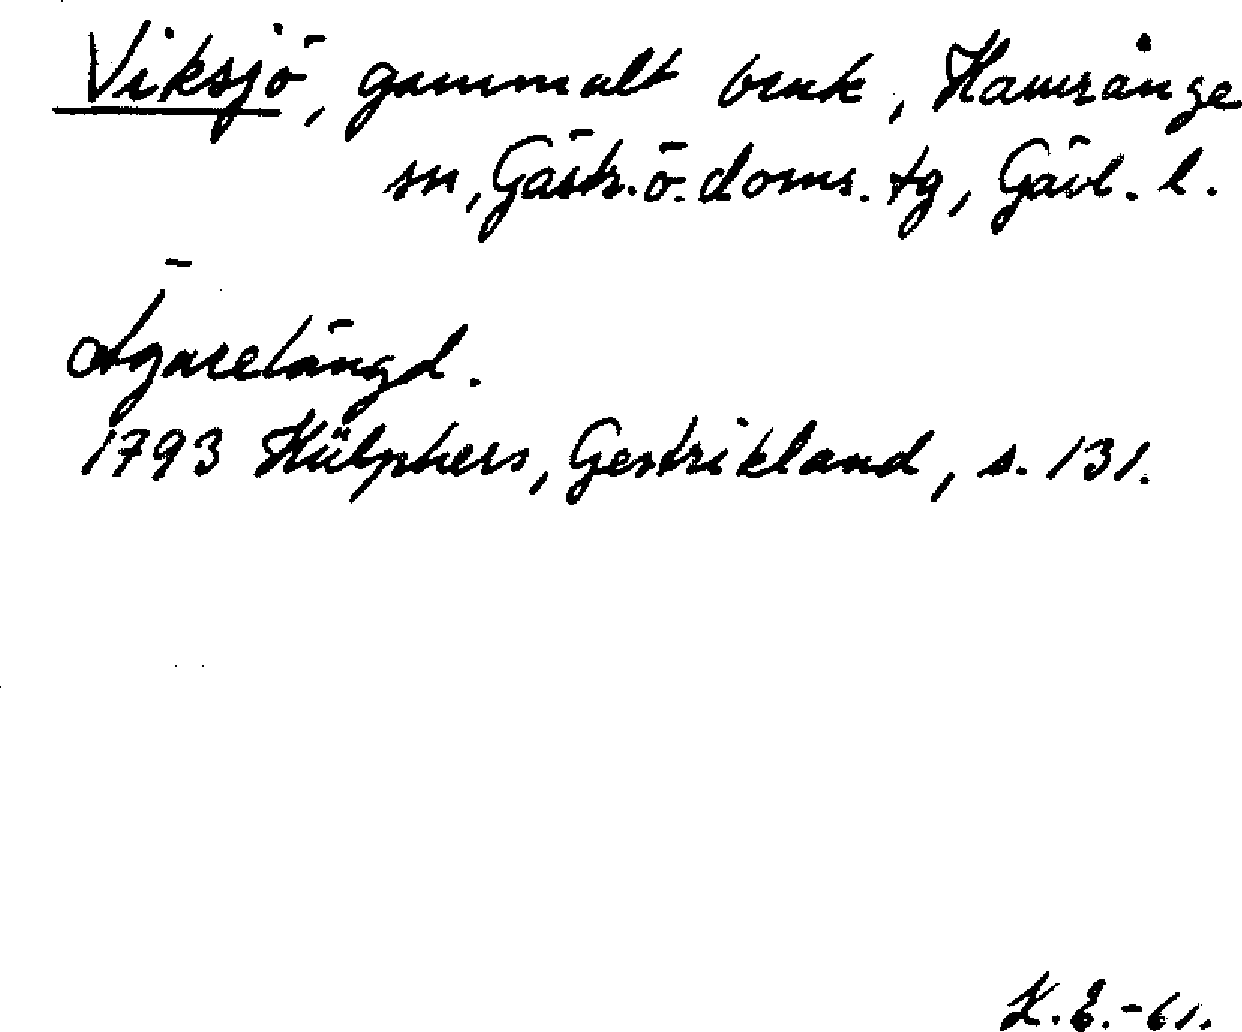 Viksjö, gammalt bruk, Hamrånge
sn, Gästr. ö. doms. tg, Gävl. l.
Ägarelängd.
1793 Hülphers, Gestrikland, s. 131.
K. E. -61.